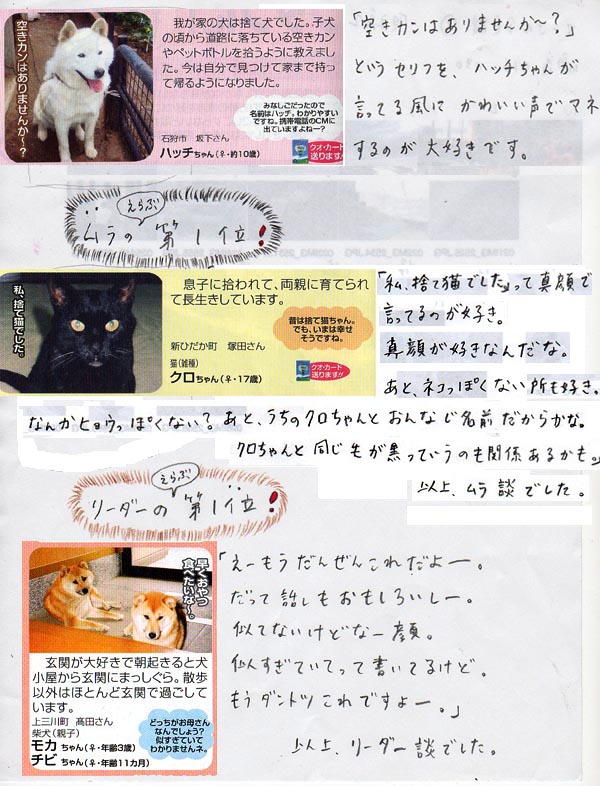 空きカンはありませんか〜?
我が家の犬は捨て犬でした。子犬
の頃から道路に落ちている空きカン
やペットボトルを拾うように教えまし
た。今は自分で見つけて家まで持っ
て帰るようになりました。
みなしごだったので
名前はハッチ。わかりやすい
ですね。携帯電話のCMに
出ていますよねー?
石狩市 坂下さん
ハッチちゃん(♀・約10歳)
クオ・カード
送ります!!
「空きカンはありませんか〜?」
というセリフを、ハッチちゃんが
言ってる風に かわいい声でマネ
するのが大好きです。
えらぶ
ムラの第1位!
私、捨て猫でした。
息子に拾われて、両親に育てられ
て長生きしています。
昔は捨て猫ちゃん。
でも、いまは幸せ
そうですね。
新ひだか町 塚田さん
猫(雑種)
クロちゃん(♀・17歳)
クオ・カード
送ります!!
「私、捨て猫でした。」って真顔で
言ってるのが好き。
真顔が好きなんだな。
あと、ネコっぽくない所も好き。
なんかヒョウっぽくない?あと、うちのクロちゃんとおんなじ名前だからかな。
クロちゃんと同じ毛が黒っていうのも関係あるかも。」
以上、ムラ談でした。
えらぶ
リーダーの第1位!
早くおやつ
食べたいな〜。
玄関が大好きで朝起きると犬
小屋から玄関にまっしぐら。散歩
以外はほとんど玄関で過ごしてい
ます。
上三川町 髙田さん
柴犬(親子)
モカちゃん(♀・年齢3歳)
チビちゃん(♀・年齢11カ月)
どっちがお母さん
なんでしょう?
似すぎていて
わかりませんネ。
「えーもうだんぜんこれだよー。
だって話しもおもしろいしー。
似てないけどなー顔。
似すぎていてって書いてるけど。
もうダントツこれですよー。」
以上、リーダー談でした。